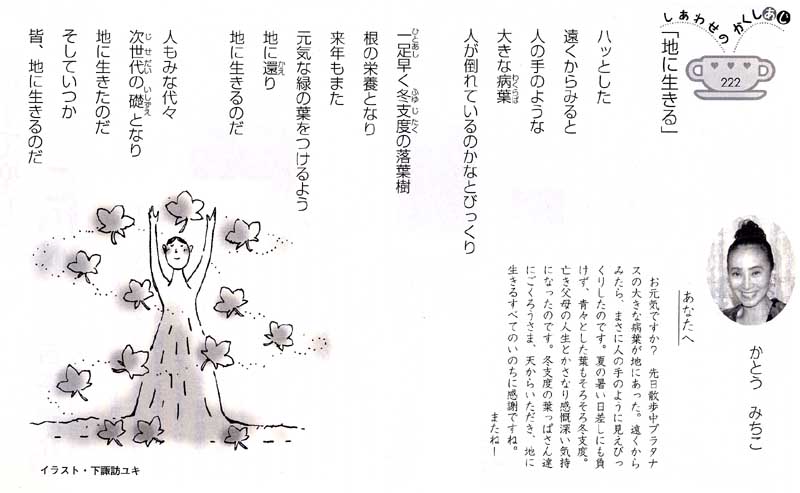 しあわせのかくしあじ
222
「地に生きる」
かとう　みちこ
ハッとした
遠くからみると
人の手のような
わくらば
大きな病葉
人が倒れているのかなとびっくり
ひとあし　ふゆじたく
一足早く冬支度の落葉樹
根の栄養となり
来年もまた
元気な緑の葉をつけるよう
かえ
地に還り
地に生きるのだ
人もみな代々
じせだい　いしずえ
次世代の礎となり
地に生きたのだ
そしていつか
皆、地に生きるのだ
あなたへ
お元気ですか？　先日散歩中プラタナ
スの大きな病葉が地にあった。遠くから
みたら、まさに人の手のように見えびっ
くりしたのです。夏の暑い日差しにも負
けず、青々とした葉もそろそろ冬支度。
亡き父母の人生とかさなり感慨深い気持
になったのです。冬支度の葉っぱさん達
にごくろうさま、天からいただき、地に
生きるすべてのいのちに感謝ですね。
またね！
イラスト・下諏訪ユキ